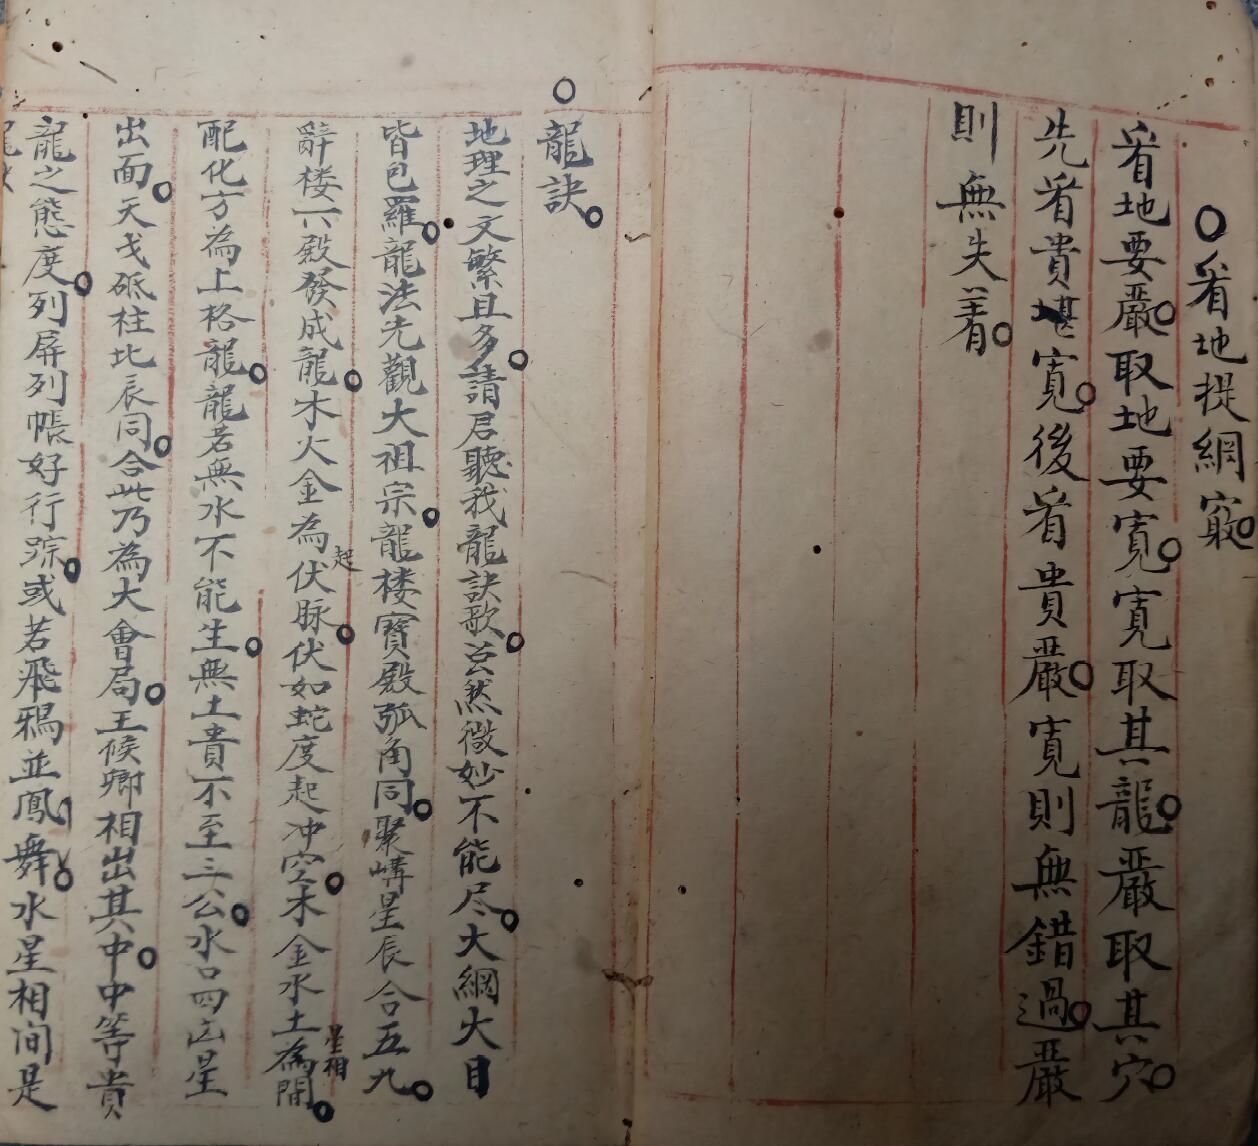 ○看地提綱竅
看地要嚴○取地要寬○寬取其龍○嚴取其穴○
先看貴寬○後看貴嚴○寬則無錯過○嚴
則無失着○
○
龍訣○
地理之文繁且多○請君聽我龍訣歌○玄然微妙不能尽○大綱大目
皆包羅○龍法先觀大祖宗○龍楼寶殿弧角同○聚講星辰合五九○
辭楼下殿發成龍○木火金為伏起脉○伏如蛇度起冲空○木金水土為星相間○
配化方為上格龍○龍若無水不能生○無土貴不至三公○水口四凶星
出面○天戈砥柱北辰同○合此乃為大會局○王候卿相出其中○中等貴
龍之態度○列屏列帳好行踪○或若飛鴉並鳳舞○水星相间是